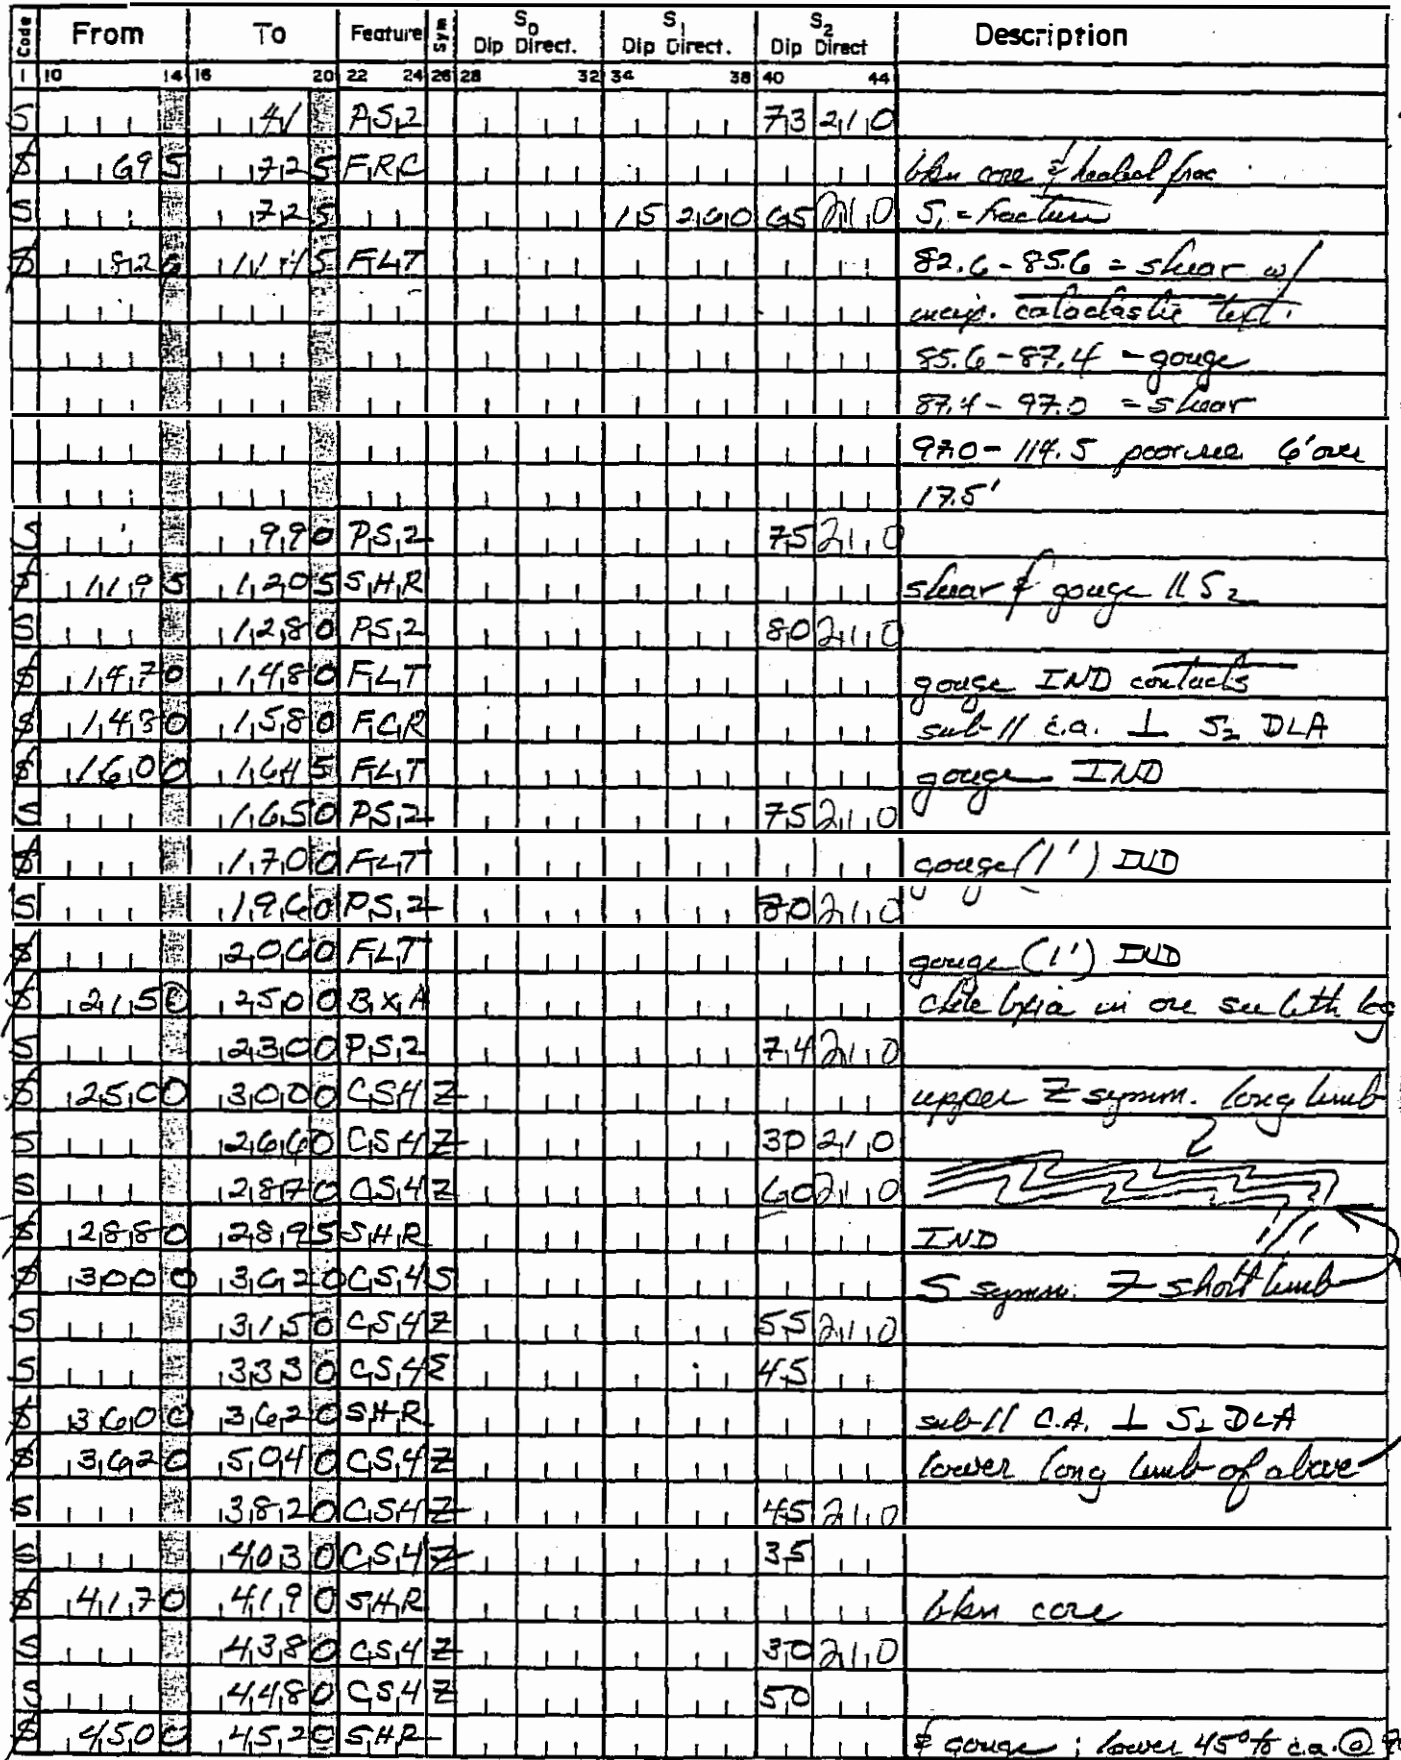 Code From To Feature Sym S0 Dip Direct. S1 Dip Direct. S2 Dip Direct Description
1 10 14 16 20 22 24 26 28 32 34 38 40 44
S 41 PS2 73 210
S 695 725 FRC bkn core & healed frac
S 725 15 200 65 210 S1 = fracture
S 826 1145 FLT 82.6-85.6 = shear w/
cataclastic text.
85.6-87.4 - gouge
87.4-97.0 = shear
97.0-114.5 poor rec 6' over
17.5'
S 990 PS2 75 210
S 1195 1205 SHR shear & gouge // S2
S 1280 PS2 80 210
S 1470 1480 FLT gouge IND contacts
S 1430 1580 FCR sub // c.a. ⊥ S2 DLA
S 1600 1645 FLT gouge IND
S 1650 PS2 75 210
S 1700 FLT gouge (1') IND
S 1960 PS2 80 210
S 2060 FLT gouge (1') IND
S 2150 2500 BXA bxia in ore see lith log
S 2300 PS2 74 210
S 2500 3000 CS4 Z upper Z symm. long limb
S 2660 CS4 Z 30 210
S 2870 CS4 Z 60 210
S 2880 2895 SHR IND
S 3000 3620 CS4 S S symm. Z short limb
S 3150 CS4 Z 55 210
S 3330 CS4 Σ 45
S 3600 3620 SHR sub // C.A. ⊥ S2 DLA
S 3620 5040 CS4 Z lower long limb of above
S 3820 CS4 Z 45 210
S 4030 CS4 Z 35
S 4170 4190 SHR bkn core
S 4380 CS4 Z 30 210
S 4480 CS4 Z 50
S 4500 4520 SHR & gouge ; lower 45° to c.a. @